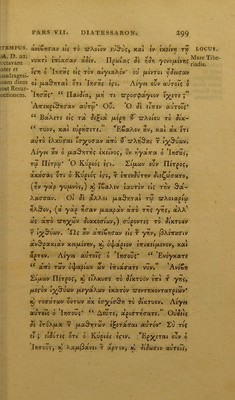 PARS VII. DIATESSARON. 299
TEMPUS.
LOCUS.
Mare Tibe-
riadis.
ἀνέβησαν εἰς τὸ πλοῖον εὐθὺς, καὶ ἐν ἐκείνῃ τῇ
νυκτὶ ἐπίασαν οὐδέν. Πρωΐας δὲ ἤδη γενομένης
ἔστη ὁ Ἰησοῦς εἰς τὸν αἰγιαλόν· οὐ μέντοι ᾔδεισαν
οἱ μαθηταὶ ὅτι Ἰησοῦς ἐστι. Λέγει οὖν αὐτοῖς ὁ
Ἰησοῦς “ Παιδία, μή τι προσφάγιον ἔχετε ;”
Ἀπεκρίθησαν αὐτῷ· Οὔ. Ὁ δὲ εἶπεν αὐτοῖς·
“ Βάλετε εἰς τὰ δεξιὰ μέρη τοῦ πλοίου τὸ δίκ-
“ τυον, καὶ εὑρήσετε.” Ἔβαλον οὖν, καὶ οὐκ ἔτι
αὐτὸ ἑλκύσαι ἴσχυσαν ἀπὸ τοῦ πλήθους τῶν ἰχθύων.
Λέγει οὖν ὁ μαθητὴς ἐκεῖνος, ὃν ἠγάπα ὁ Ἰησοῦς,
τῷ Πέτρῳ· Ὁ Κύριός ἐστι. Σίμων οὖν Πέτρος,
ἀκούσας ὅτι ὁ Κύριός ἐστι, τὸν ἐπενδύτην διεζώσατο,
(ἦν γὰρ γυμνὸς,) καὶ ἔβαλεν ἑαυτὸν εἰς τὴν θά-
λασσαν. Οἱ δὲ ἄλλοι μαθηταὶ τῷ πλοιαρίῳ
ἦλθον, (οὐ γὰρ ἦσαν μακρὰν ἀπὸ τῆς γῆς, ἀλλ᾽
ὡς ἀπὸ πηχῶν διακοσίων,) σύροντες τὸ δίκτυον
τῶν ἰχθύων. Ὡς οὖν ἀπέβησαν εἰς τὴν γῆν, βλέπουσιν
ἀνθρακιὰν κειμένην, καὶ ὀψάριον ἐπικείμενον, καὶ
ἄρτον. Λέγει αὐτοῖς ὁ Ἰησοῦς· “ Ἐνέγκατε
“ ἀπὸ τῶν ὀψαρίων ὧν ἐπιάσατε νῦν.” Ἀνέβη
Σίμων Πέτρος, καὶ εἵλκυσε τὸ δίκτυον ἐπὶ τῆς γῆς,
μεστὸν ἰχθύων μεγάλων ἑκατὸν πεντηκοντατριῶν·
καὶ τοσούτων ὄντων οὐκ ἐσχίσθη τὸ δίκτυον. Λέγει
αὐτοῖς ὁ Ἰησοῦς· “ Δεῦτε, ἀριστήσατε.” Οὐδεὶς
δὲ ἐτόλμα τῶν μαθητῶν ἐξετάσαι αὐτόν· Σὺ τίς
εἶ ; εἰδότες ὅτι ὁ Κύριός ἐστιν. Ἔρχεται οὖν ὁ
Ἰησοῦς, καὶ λαμβάνει τὸν ἄρτον, καὶ δίδωσιν αὐτοῖς,